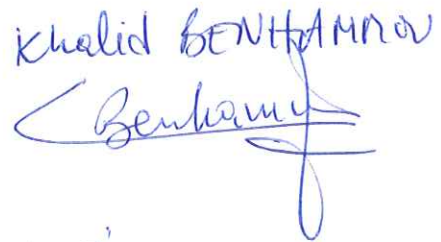 Khalid BENHAMMOU
Benhamm